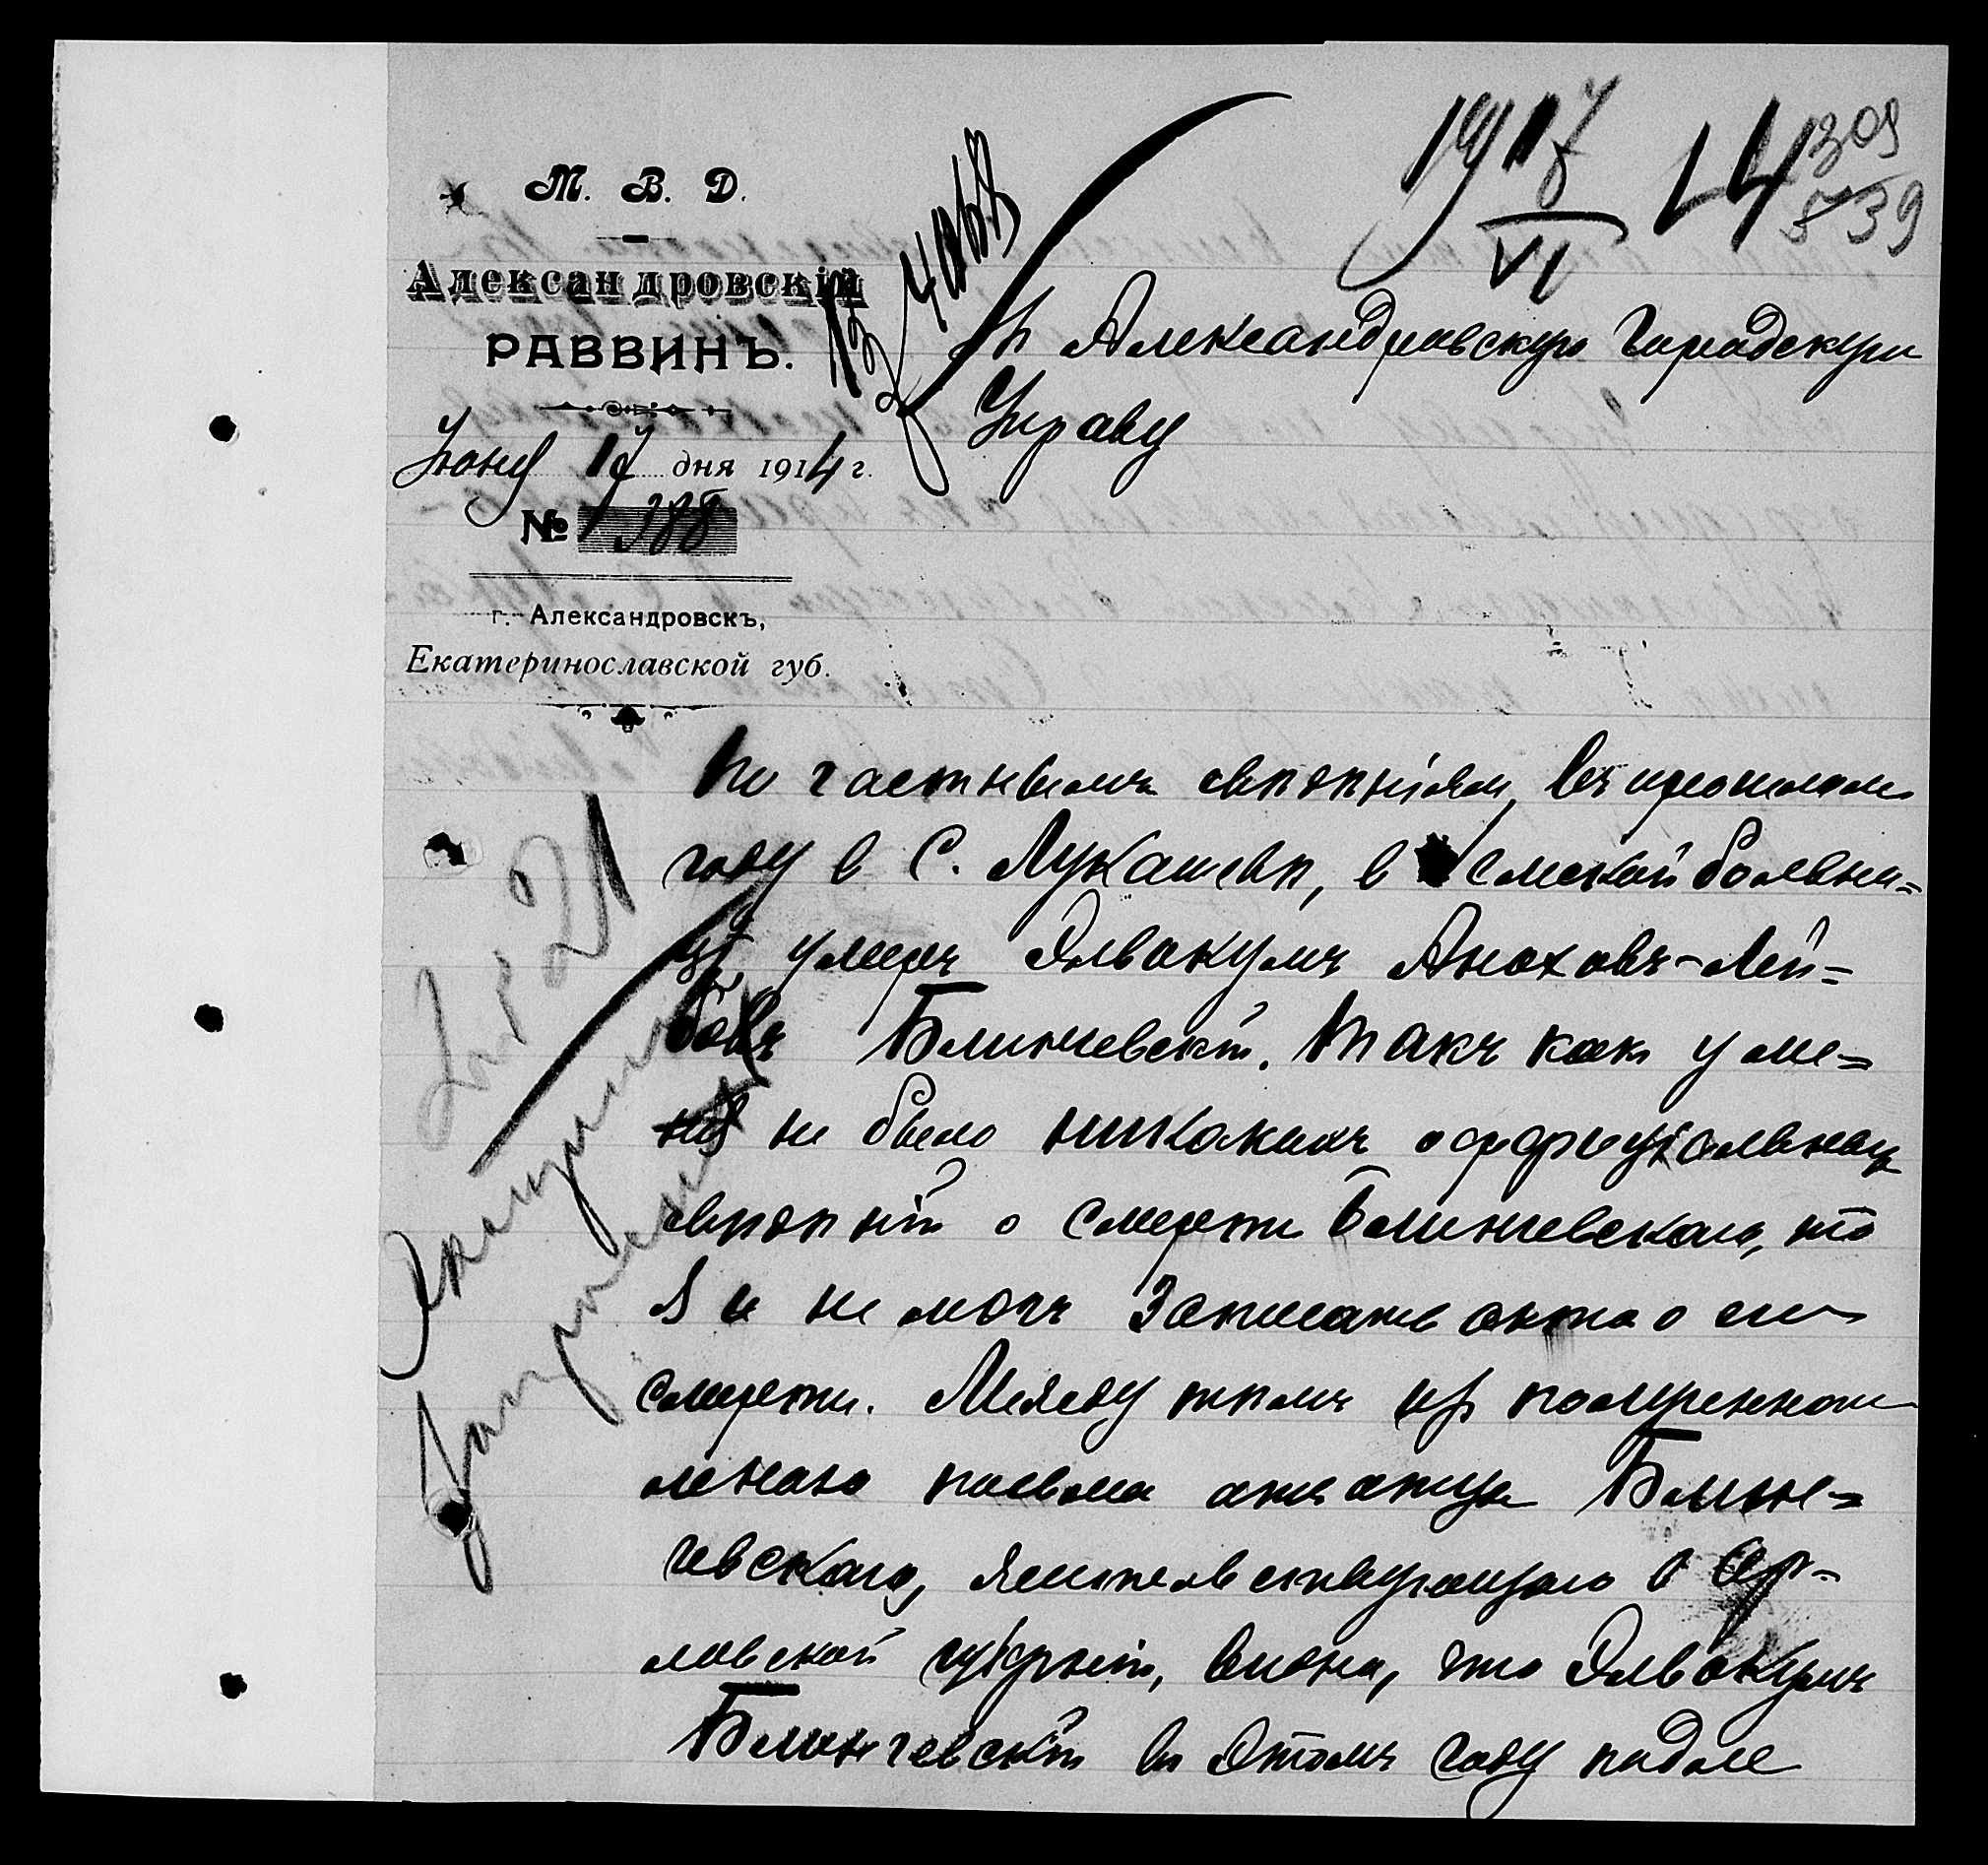 М. В. Д.
Александровскій
РАВВИНЪ.
Іюня 17 дня 1914 г.
№ 388
г. Александровскъ,
Екатеринославской губ.
1917 14 309
VI 539
Въ Александровскую Городскую
Управу
По частнымъ свѣдѣніям, въ прошлом
году в С. Лукашевѣ, в Земской больни=
цѣ умеръ Эльвокумъ Аноховъ-Лей=
бовъ Блинчевскій. Такъ как у ме=
ня не было никакихъ оффиціальных
свѣдѣній о смерти Блинчевскаго, то
я и не могъ записать акта о его
смерти. Между тѣмъ из полученнаго
мною письма отъ отца Блин=
чевскаго, жительствующаго в Ор=
ловской губерніи, видно, что Эльвокумъ
Блинчевскій в этомъ году подле